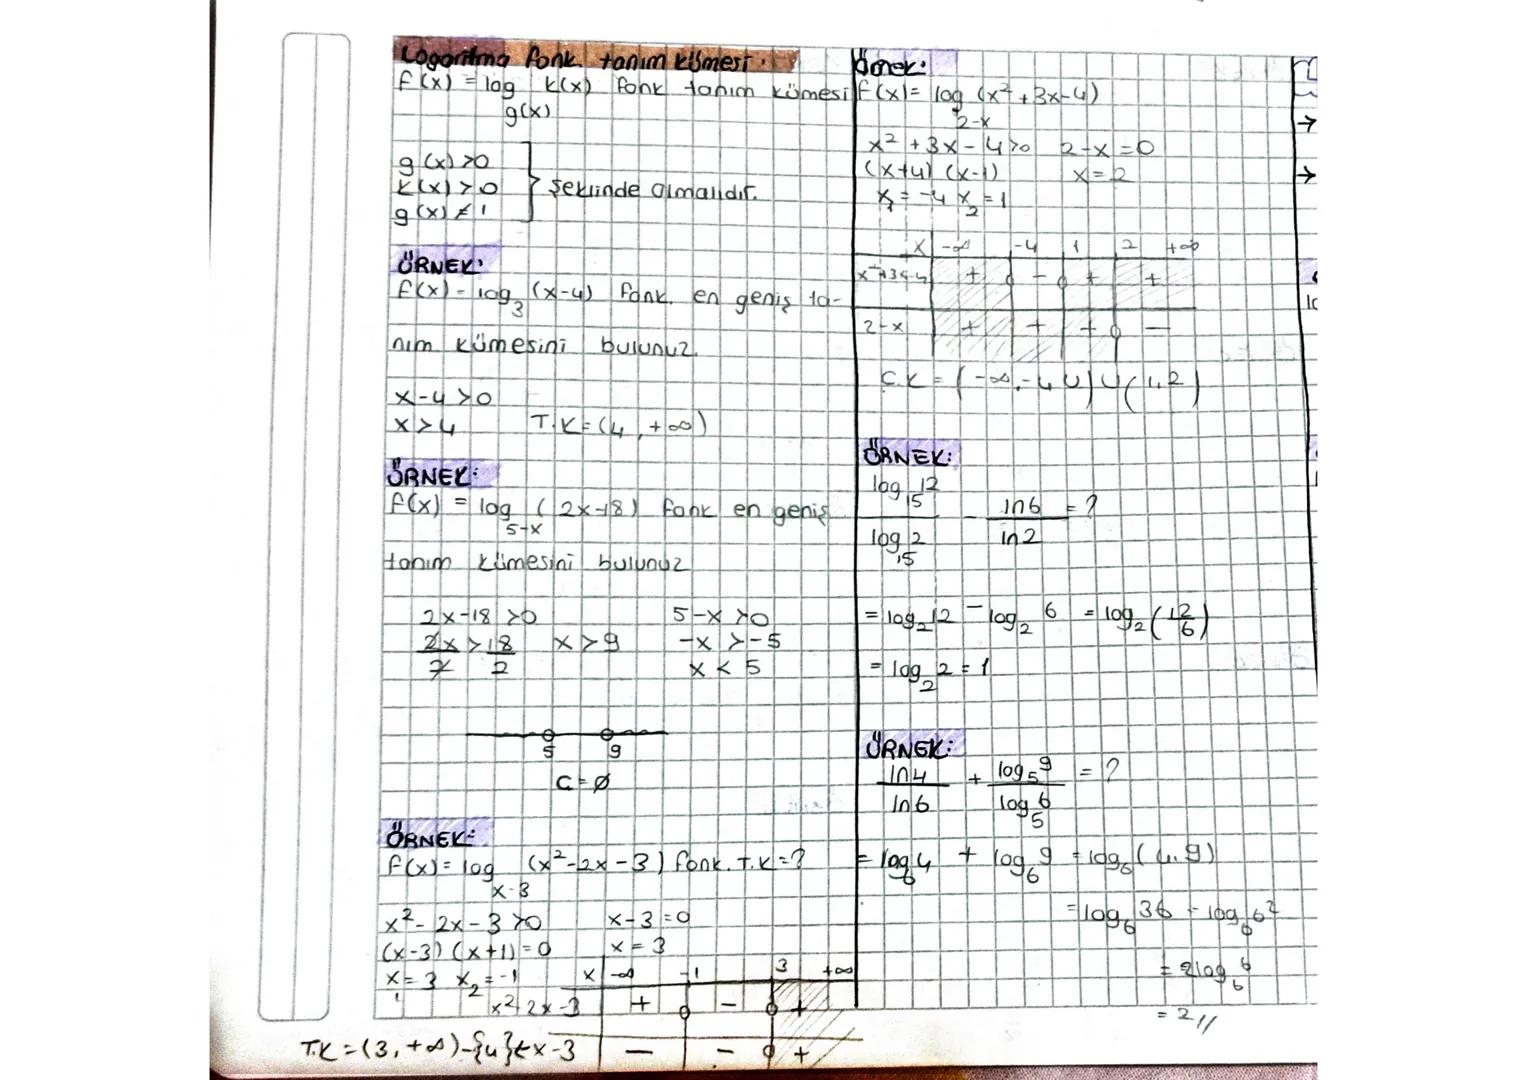 Logaritma fonk. tanım kümesi.
f(x) = log_g(x) k(x) fonk tanım kümesi
g(x) >0
k(x) > 0
g(x) ≠ 1
} şeklinde olmalıdır.
ÖRNEK:
f(x) = log_3 (x-4) fonk. en geniş ta-
nım kümesini bulunuz.
x-4 >0
x > 4 T.K = (4, +∞)
ÖRNEK:
f(x) = log_5-x (2x-18) fonk en geniş
tanım kümesini bulunuz
2x-18 >0 5-x >0
2x/2 > 18/2 x > 9 -x > -5
x < 5
5 9
Ç = ∅
ÖRNEK:
f(x) = log_x-3 (x²-2x-3) fonk. T.K = ?
x²-2x-3 >0 x-3 = 0
(x-3) (x+1) = 0 x = 3
x₁ = 3 x₂ = -1
x -∞ -1 3 +∞
x²-2x-3 + - +
x-3 - - +
T.K = (3, +∞) - {4}
Örnek:
f(x) = log_2-x (x²+3x-4)
x²+3x-4 >0 2-x = 0
(x+4) (x-1) x = 2
x₁ = -4 x₂ = 1
x -∞ -4 1 2 +∞
x²+3x-4 + - + +
2-x + + + -
Ç.K = (-∞, -4) ∪ (1, 2)
ÖRNEK:
log_15 12 / log_15 2 - ln6 / ln2 = ?
= log_2 12 - log_2 6 = log_2 (12/6)
= log_2 2 = 1
ÖRNEK:
ln4 / ln6 + log_5 9 / log_5 6 = ?
= log_6 4 + log_6 9 = log_6 (4.9)
= log_6 36 = log_6 6²
= 2log_6 6
= 2//